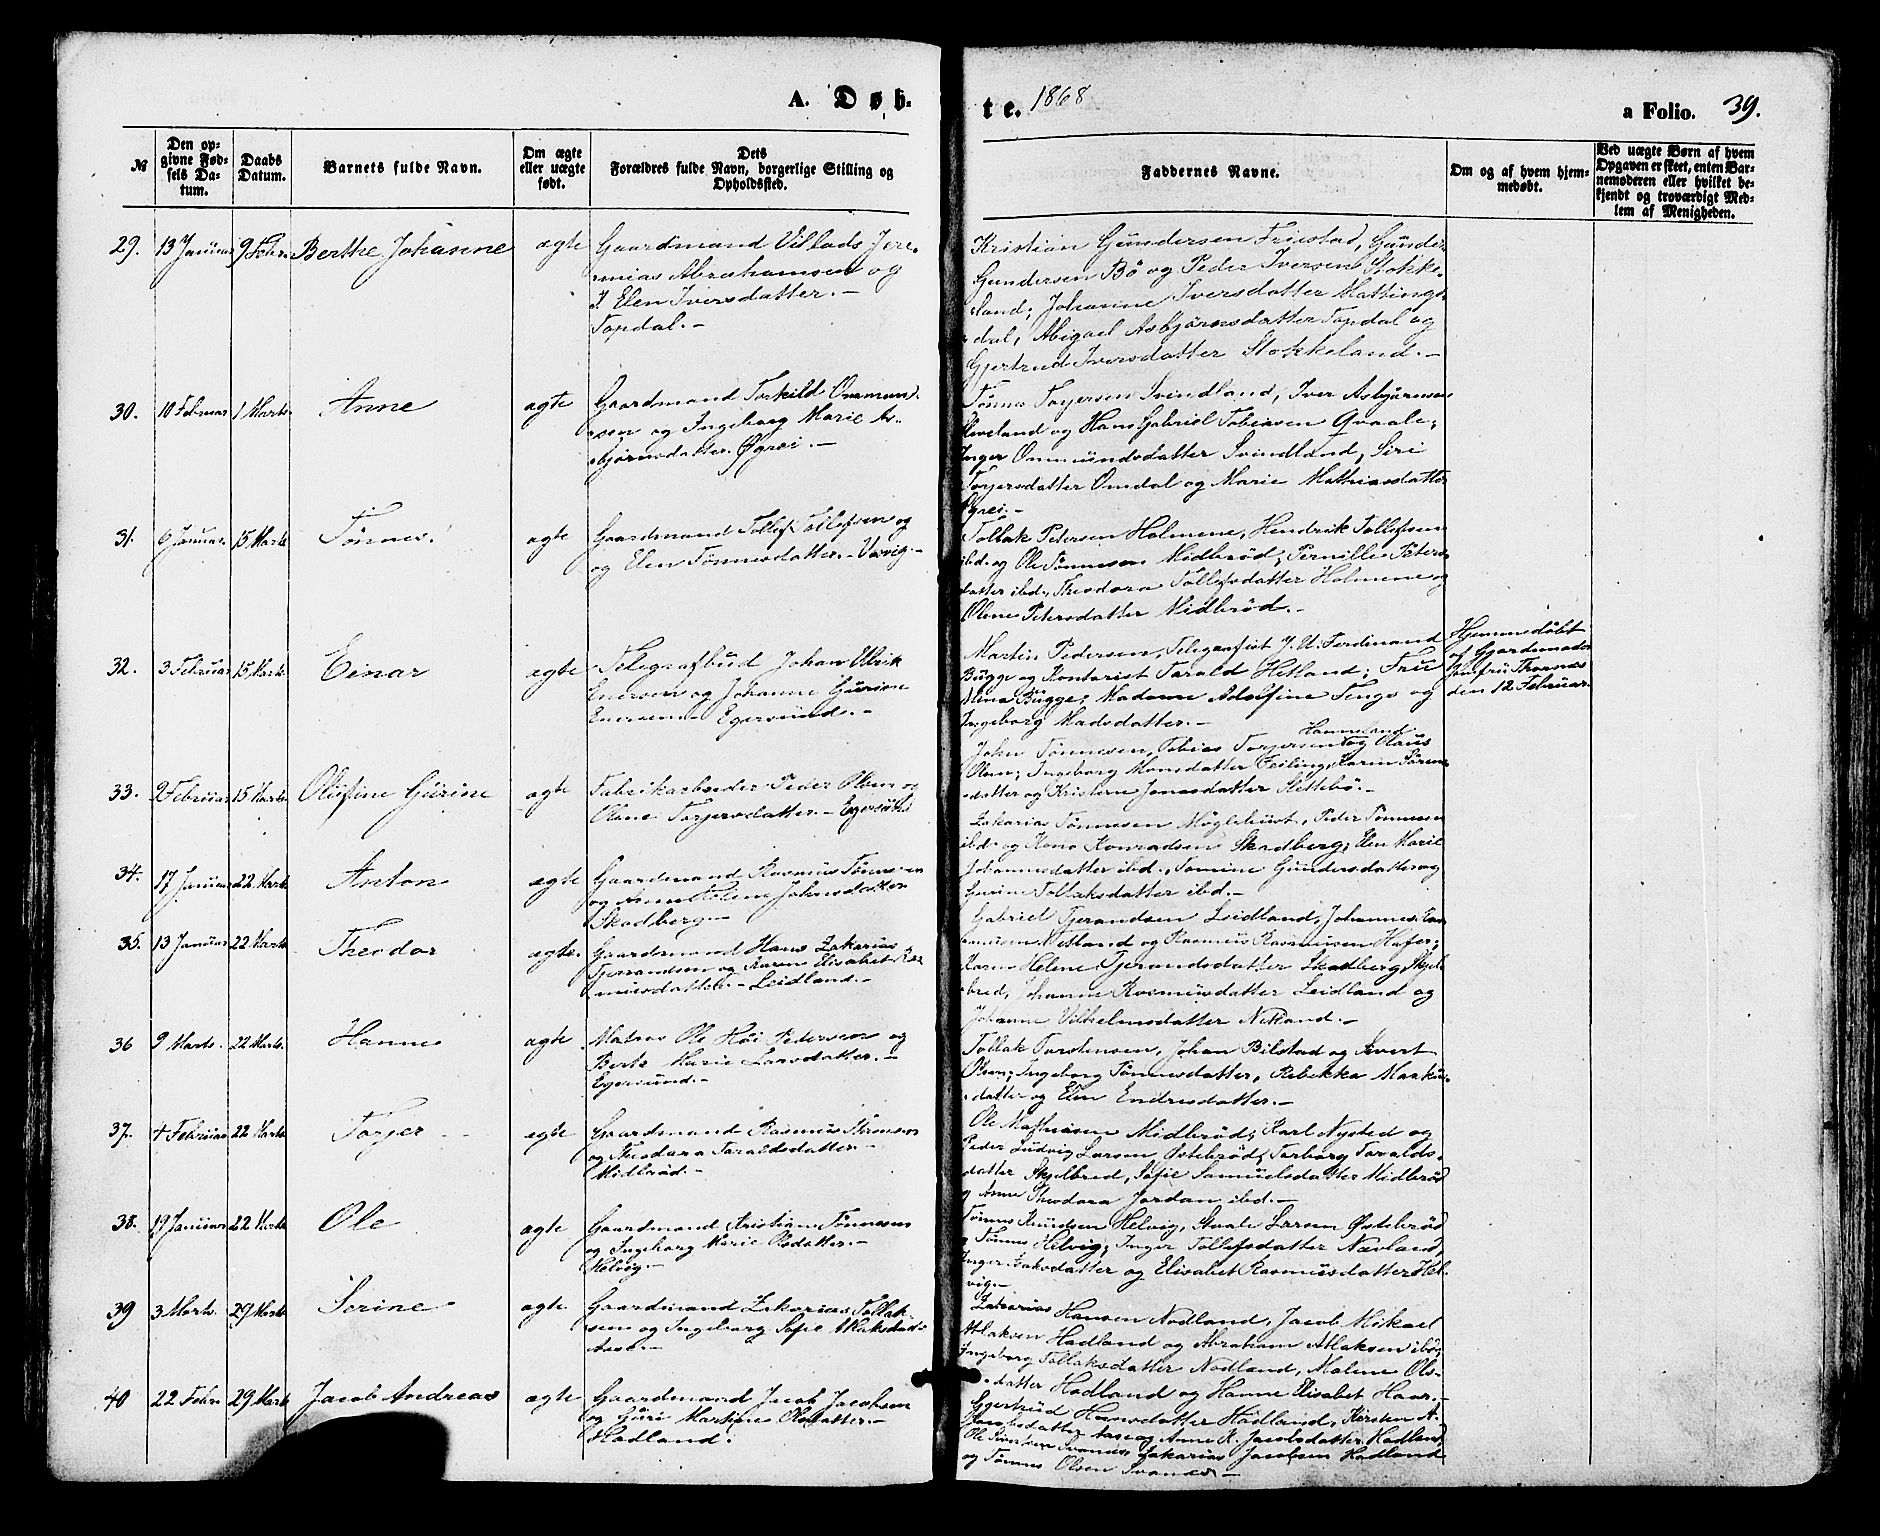 A. Døb-
te. 1868
a Folio. 39.
№
Den op-
givne Fød-
sels Da-
tum.
Daabs
Datum.
Barnets fulde Navn.
Om ægte
eller uægte
født.
Dets
Forældres fulde Navn, borgerlige Stilling og
Opholdssted.
Faddernes Navne.
Om og af hvem hjem-
medøbt.
Ved uægte Børn af hvem
Opgaven er skeet, enten Bar-
nemoderen eller hvilket be-
kjendt og troværdigt Med-
lem af Menigheden.
29. 13 Januar 9 Febr. Berthe Johanne ægte
Gaardmand Villads Jere-
mias Abrahamsen og
Elen Iversdatter.-
Topdal.-
Kristian Gundersen Friestad, Gunder
Gundersen Bö og Peder Iversen Stokke-
land; Johanne Iversdatter Mattings-
dal, Abigael Asbjörnsdatter Topdal og
Gjertrud Iversdatter Stokkeland.-
30. 10 Februar 1 Marts. Anne ægte
Gaardmand Torkild Ommund-
sen og Ingeborg Marie As-
björnsdatter. Øgrei.-
Tönnes Torjersen Svindland, Iver Asbjörnsen
Kleveland og Hans Gabriel Tobiasen Qvaale;
Inger Ommundsdatter Svindland, Siri
Torjersdatter Omdal og Marie Mathiasdatter
Øgrei.-
31. 6 Januar. 15 Marts Tönnes. ægte
Gaardmand Tollef Tollefsen og
og Elen Tönnesdatter.- Vavig.-
Tollak Petersen Holmene, Hendrik Tollefsen
ibd. og Ole Tönnesen Midbröd; Pernille Peters-
datter ibd., Theodora Tollefsdatter Holmene og
Olene Petersdatter Midbröd.-
32. 3 Februar 15 Marts Einar ægte
Telegrafbud Johan Ulrik
Enersen og Johanne Gurine
Enersen.- Egersund.-
Martin Pedersen, Telegrafist J. U. Ferdinand
Bugge og Kontorist Tarald Hetland; Frue
Alma Bugge, Madame Adolfine Fenge og
Ingeborg Madsdatter.-
Hjemmedöbt
af Gjordemoder
Jomfru Thornæs
den 12 Februar.
33. 2 Februar 15 Marts. Olufine Gurine ægte
Fabrikarbeider Peder Olsen og
Olene Torjersdatter.- Egersund
John Tönnesen, Tobias Torjersen Hammeland og Olaus
Olsen; Ingeborg Monsdatter Feiling, Karen Sören-
datter og Kristine Jonasdatter Slettebö.-
34. 17 Januar 22 Marts. Anton ægte
Gaardmand Rasmus Tönnesen
og Anne Helene Johnsdatter
Skadberg.-
Zakarias Tönnesen Möglehust, Peder Tönnesen
ibd. og Kono Konradsen Skadberg; Elen Marie
Johannesdatter ibd., Tomine Gundersdatter og
Gurine Tollaksdatter ibd.-
35. 13 Januar 22 Marts. Theodor ægte.
Gaardmand Hans Zakarias
Tjerandsen og Karen Elisabet Ras-
musdatter.- Leidland.-
Gabriel Tjerandsen Leidland, Johannes Ras-
musen Netland og Rasmus Rasmusen Hafsr;
Karen Helene Tjerandsdatter Skadberg, Skjel-
bred, Johanne Rasmusdatter Leidland og
Johanne Vilhelmsdatter Netland.-
36 9 Marts. 22 Marts. Hanne ægte
Matros Ole Höi Pedersen og
Berte Marie Larsdatter.-
Egersund.-
Tollak Torstensen, Johan Bilstad og Sivert
Olsen; Ingeborg Tönnesdatter, Rebekka Markus-
datter og Elen Endresdatter.-
37. 4 Februar 22 Marts. Torjer ægte
Gaardmand Rasmus Simonsen
og Theodora Taraldsdatter.-
Midbröd.-
Ole Mathiasen Midbröd; Karl Nysted og
Peder Ludvig Larsen Østebröd; Torborg Taralds-
datter Skjelbred, Sofie Samuelsdatter Midbröd
og Anne Theodora Jordan ibd.-
38. 19 Januar 22 Marts Ole ægte
Gaardmand Kristian Tönnesen
og Ingeborg Marie Olsdatter.-
Helvig.-
Tönnes Knudsen Helvig, Svale Larsen Østebröd
og Tönnes Helvig; Inger Tollefsdatter Navland,
Inger Isaksdatter og Elisabet Rasmusdatter Hel-
vig.-
39 3 Marts. 29 Marts Serine ægte
Gaardmand Zakarias Tollak-
sen og Ingeborg Sofie
Aase.-
Zakarias Hansen Nodland, Jacob Mikael
Atlaksen Hadland og Abraham Atlaksen ibd;
Ingeborg Tollaksdatter Nodland, Malene Ols-
datter Hadland og Hanne Elisabet Haar.-
40 22 Febr. 29 Marts Jacob Andreas ægte
Gaardmand Jacob Jacobsen
og Guri Martine Olsdatter.-
Hadland.
Gjertrud Hansdatter Hadland, Kirsten A.
Jacobsdatter Aase og Anne K. Jacobsdatter Hadland
Ole Svanes, Zakarias Jacobsen Hadland
og Tönnes Olsen Svanes.-